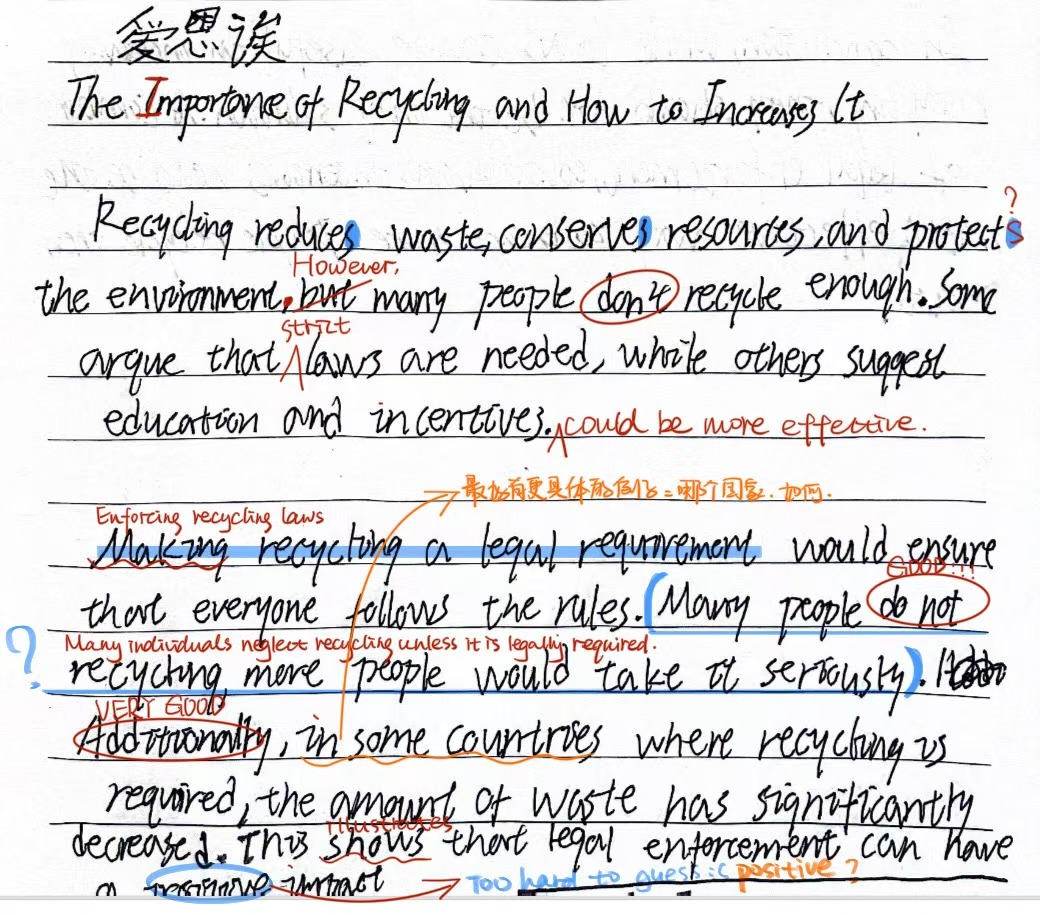 爱恩诶
The Importance of Recycling and How to Increases It
?
Recycling reduces waste, conserves resources, and protects
However,
the environment. but many people don't recycle enough. Some
strict
argue that laws are needed, while others suggest
education and incentives. could be more effective.
最好有更具体的 哪个国家. 如何.
Enforcing recycling laws
Making recycling a legal requirement would ensure
GOOD!!!
that everyone follows the rules. (Many people do not
Many individuals neglect recycling unless it is legally required.
? recycling, more people would take it seriously).
VERY GOOD
Additionally, in some countries where recycling is
required, the amount of waste has significantly
illustrates
decreased. This shows that legal enforcement can have
a positive impact Too hard to guess: is positive?